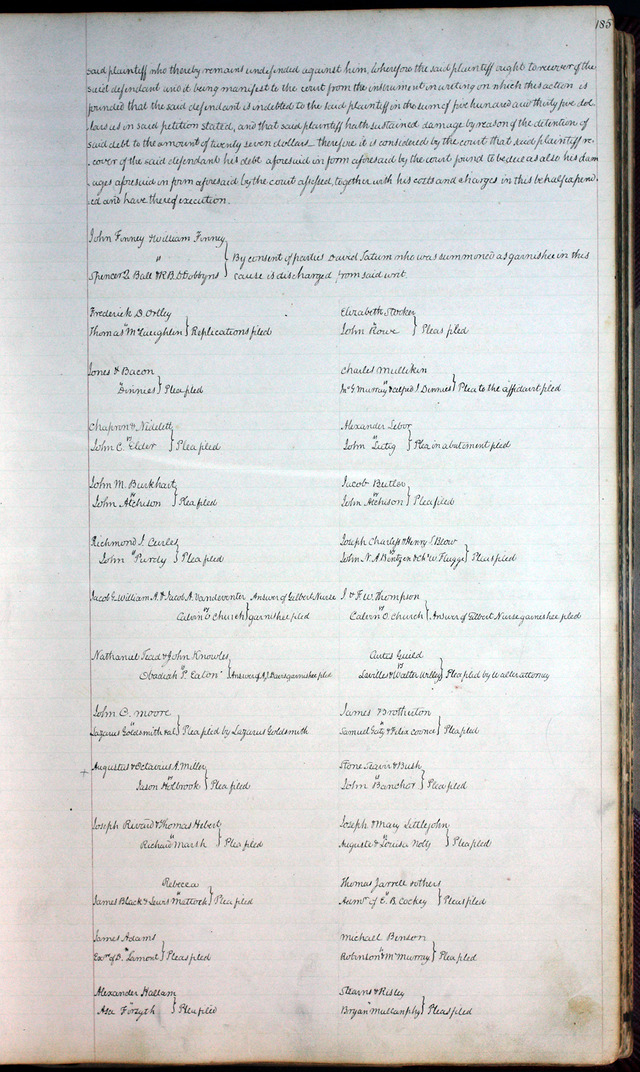 185
said plaintiff who thereby remains undefended against him, Wherefore the said plaintiff ought to recover of the
said defendant and it being manifest to the court from the instrument in writing on which this action is
founded that the said defendant is indebted to the said plaintiff in the sum of five hundred and thirty five dol
lars as in said petition stated, and that said plaintiff hath sustained damage by reason of the detention of
said debt to the amount of twenty seven dollars therefore it is considered by the court that said plaintiff re-
cover of the said defendant his debt aforesaid in form aforesaid by the court found to be due as also his dam
ages aforesaid in form aforesaid by the court assessed, together with his costs and charges in this behalf expend-
ed and have thereof execution.
John Finney & William Finney
vs } By consent of parties David Tatum who was summoned as garnishee in this
Spencer Ball & R.B. Dobbyns } cause is discharged from said writ.
Frederick D. Ortley
vs
Thomas McLaughlin } Replications pled
Elizabeth Stocker
John Rowe } Pleas pled
Jones & Bacon
Dinnies } Plea pled
Charles Mullikin
vs
Jno G Murray & Alfred J Dinnies } Plea to the affidavit pled
vs
John C. Elder } Plea pled
Alexander Lebor
vs
John Lutig } Plea in abatement pled
John M. Burkhart
vs
John Atchison } Plea pled
Jacob Butler
vs
John Atchison } Plea pled
Richmond J. Curles
vs
John Purdy } Plea pled
Joseph Charless & Henry T. Blow
vs
John N. A. & Ch. W. Flugge } Pleas pled
Jacob William A. & Jacob A. Vandeventer Answer of Gilbert Nurse
vs
Calvin O Church } garnishee pled
J & F. W. Thompson
Calvin O. Church } Answer of Gilbert Nurse garnishee pled
Nathaniel Tead & John Knowles
vs
Obadiah P. Eaton } Answer of garnishee pled
Curtis Guild
vs
Saville & Walter Willey } Plea pled by Walter attorney
John C. Moore
vs
Lazarus Goldsmith et al } Plea pled by Lazarus Goldsmith
James Brotherton
vs
Samuel Gaty & Felix Coonce } Plea pled
Augustus & Octavius A. Miller
vs
Jason Holbrook } Plea pled
Stone & Bush
vs
John Banchor } Plea pled
Joseph Rivard & Thomas Hebert
vs
Richard Marsh } Plea pled
Joseph & Mary Littlejohn
vs
Auguste & Louisa Nolly } Plea pled
Rebecca
vs
James Black & Lewis Mattock } Plea pled
Thomas Jarrell & others
vs
Admr. of E. B. Cockey } Pleas pled
James Adams
vs
Exr. of D. Lamont } Pleas pled
Michael Benson
vs
Robinson & McMurray } Plea pled
Alexander Hallam
vs
Asa Forsyth } Plea pled
Stearns & Risley
vs
Bryan Mullanphy } Pleas pled